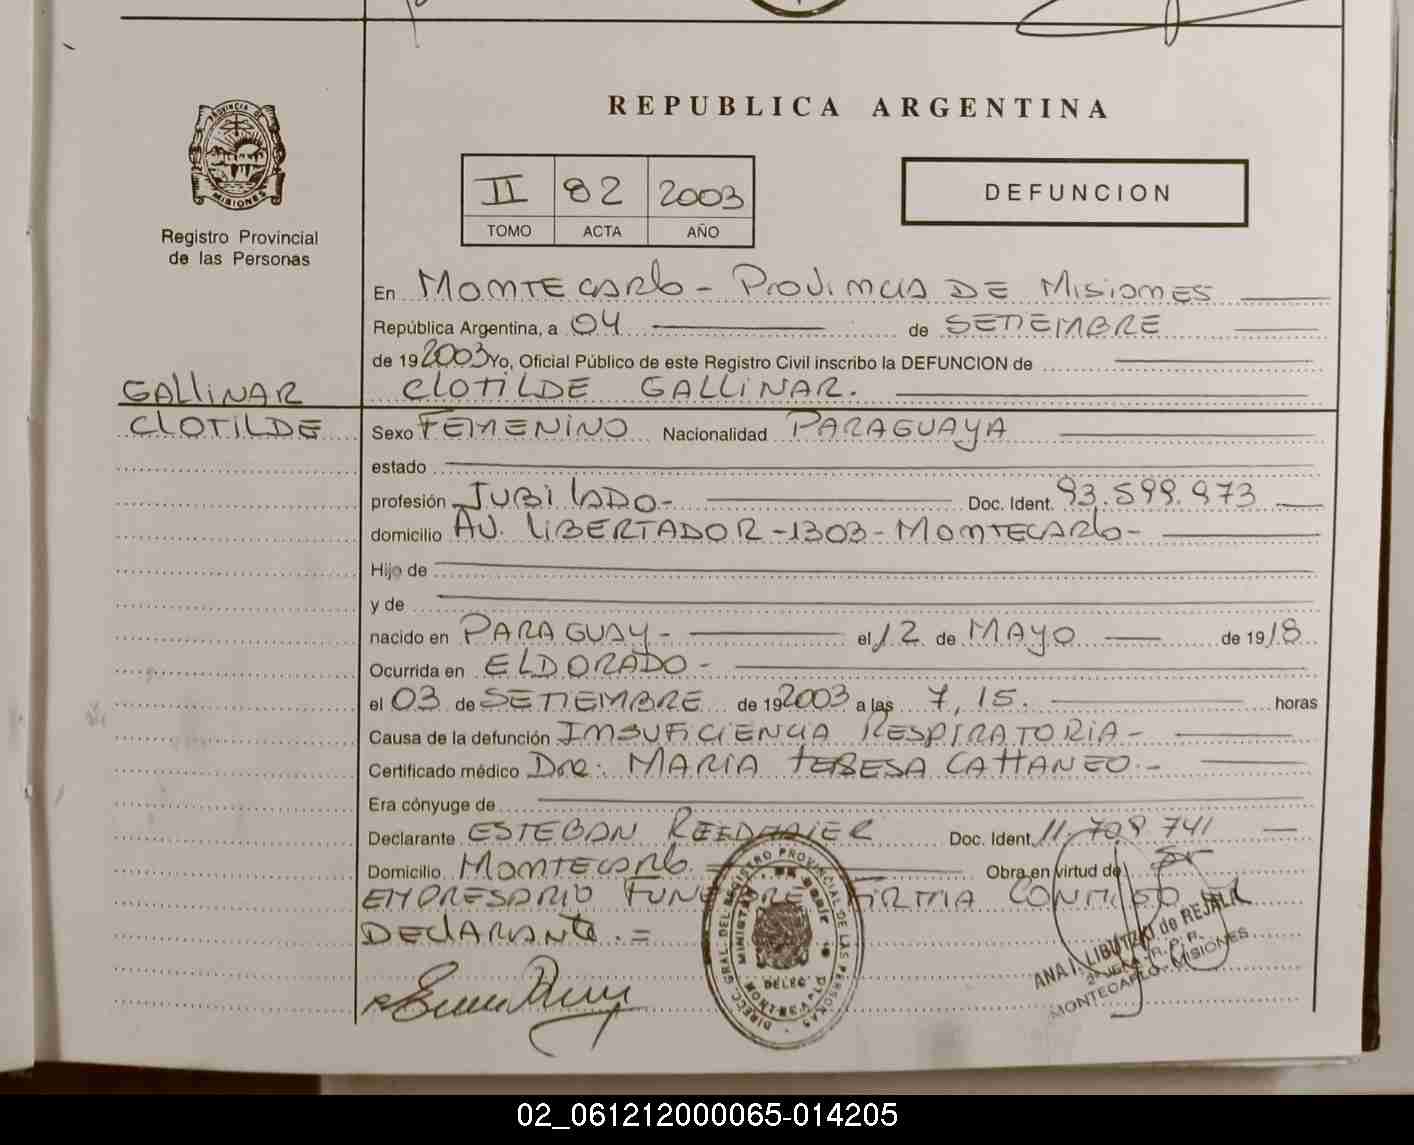 REPUBLICA ARGENTINA
PROVINCIA DE
MISIONES
Registro Provincial
de las Personas
II 82 2003
TOMO ACTA AÑO
DEFUNCION
En MONTECARLO - PROVINCIA DE MISIONES
República Argentina, a 04 de SETIEMBRE
de 19 2003 Yo, Oficial Público de este Registro Civil inscribo la DEFUNCION de
CLOTILDE GALLINAR.
GALLINAR
CLOTILDE
Sexo FEMENINO Nacionalidad PARAGUAYA
estado
profesión JUBILADO- Doc. Ident. 93.599.973
domicilio AV. LIBERTADOR -1303- MONTECARLO-
Hijo de
y de
nacido en PARAGUAY- el 12 de MAYO de 19 18
Ocurrida en ELDORADO -
el 03 de SETIEMBRE de 19 2003 a las 7,15. horas
Causa de la defunción INSUFICIENCIA RESPIRATORIA -
Certificado médico Dra: MARIA TERESA CATTANEO.-
Era cónyuge de
Declarante ESTEBAN Doc. Ident. 11.709.741
Domicilio MONTECARLO. Obra en virtud de
EMPRESARIO FUNEBRE FIRMA CONMIGO EL
DECLARANTE.=
DIRECC. GRAL. DEL REGISTRO PROVINCIAL DE LAS PERSONAS
ANA LIBUTZKI de REJALA
R. P. P.
MONTECARLO - MISIONES
02_061212000065-014205